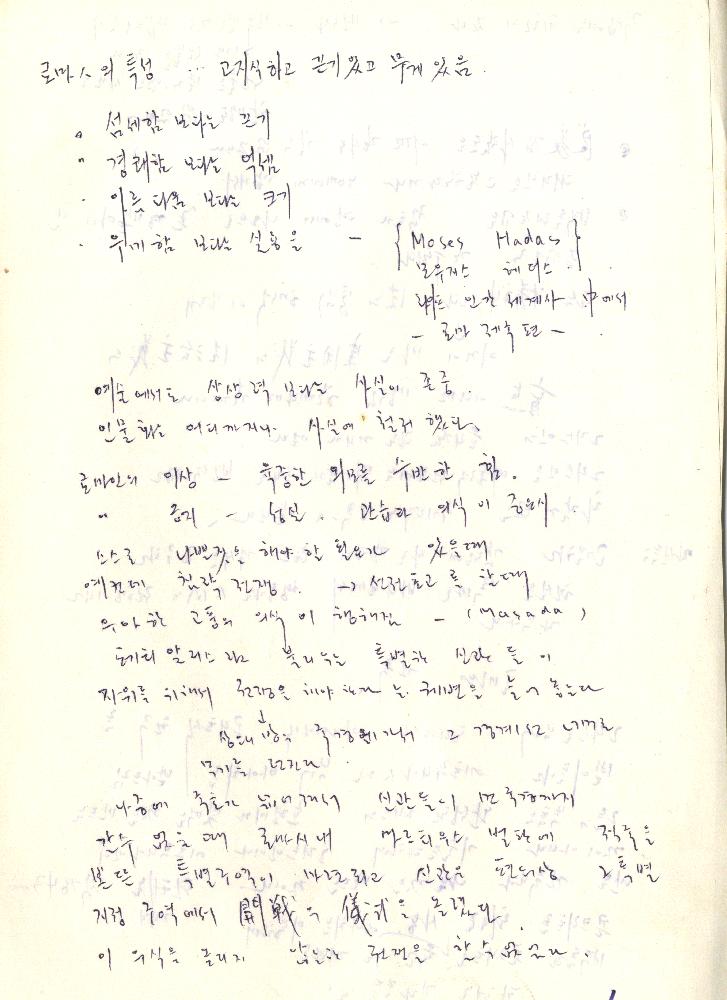 로마人의 특성 … 고지식하고 끈기있고 무게 있음.
。 섬세함 보다는 끈기
" 경쾌함 보다는 억셈
· 아름다움 보다는 크기
· 우미함 보다는 실용을 - { Moses Hadas }
모우저스 헤더스
라이프 인간 세계사 中에서
- 로마 제국 편 -
예술에서도 상상력 보다는 사실이 존중.
인물화는 어디까지나 사실에 철저했다.
로마인의 이상 - 육중한 외모를 수반한 힘.
" 긍지 - 성실. 관습과 의식이 중요시
스스로 나쁜짓을 해야 할 필요가 있을때
예컨데 침략 전쟁. → 선전포고를 할때
우아한 고풍의 의식이 행해짐 - (Masada)
알리스라 불리우는 특별한 신관들이
자위를 위해서 전쟁을 해야 한다는 궤변을 늘어놓는다
상대방의 국경에 가서 그 경계선 너머로
무기를 던진다
나중에 국토가 넓어져서 신관들이 먼 국경까지
갈수 없을 때 로마시내 마르티우스 벌판에 적국을
본딴 특별구역이 마련되고 신관은 편의상 그 특별
지정 구역에서 開戰의 儀式을 올렸다.
이 의식을 올리지 않는한 전쟁을 할수 없었다.